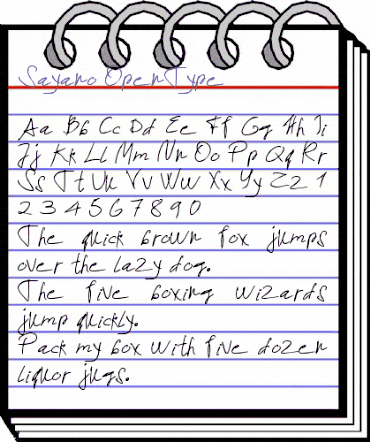 Sayano OpenType
Aa Bb Cc Dd Ee Ff Gg Hh Ii
Jj Kk Ll Mm Nn Oo Pp Qq Rr
Ss Tt Uu Vv Ww Xx Yy Zz 1
2 3 4 5 6 7 8 9 0
The quick brown fox jumps
over the lazy dog.
The five boxing wizards
jump quickly.
Pack my box with five dozen
liquor jugs.